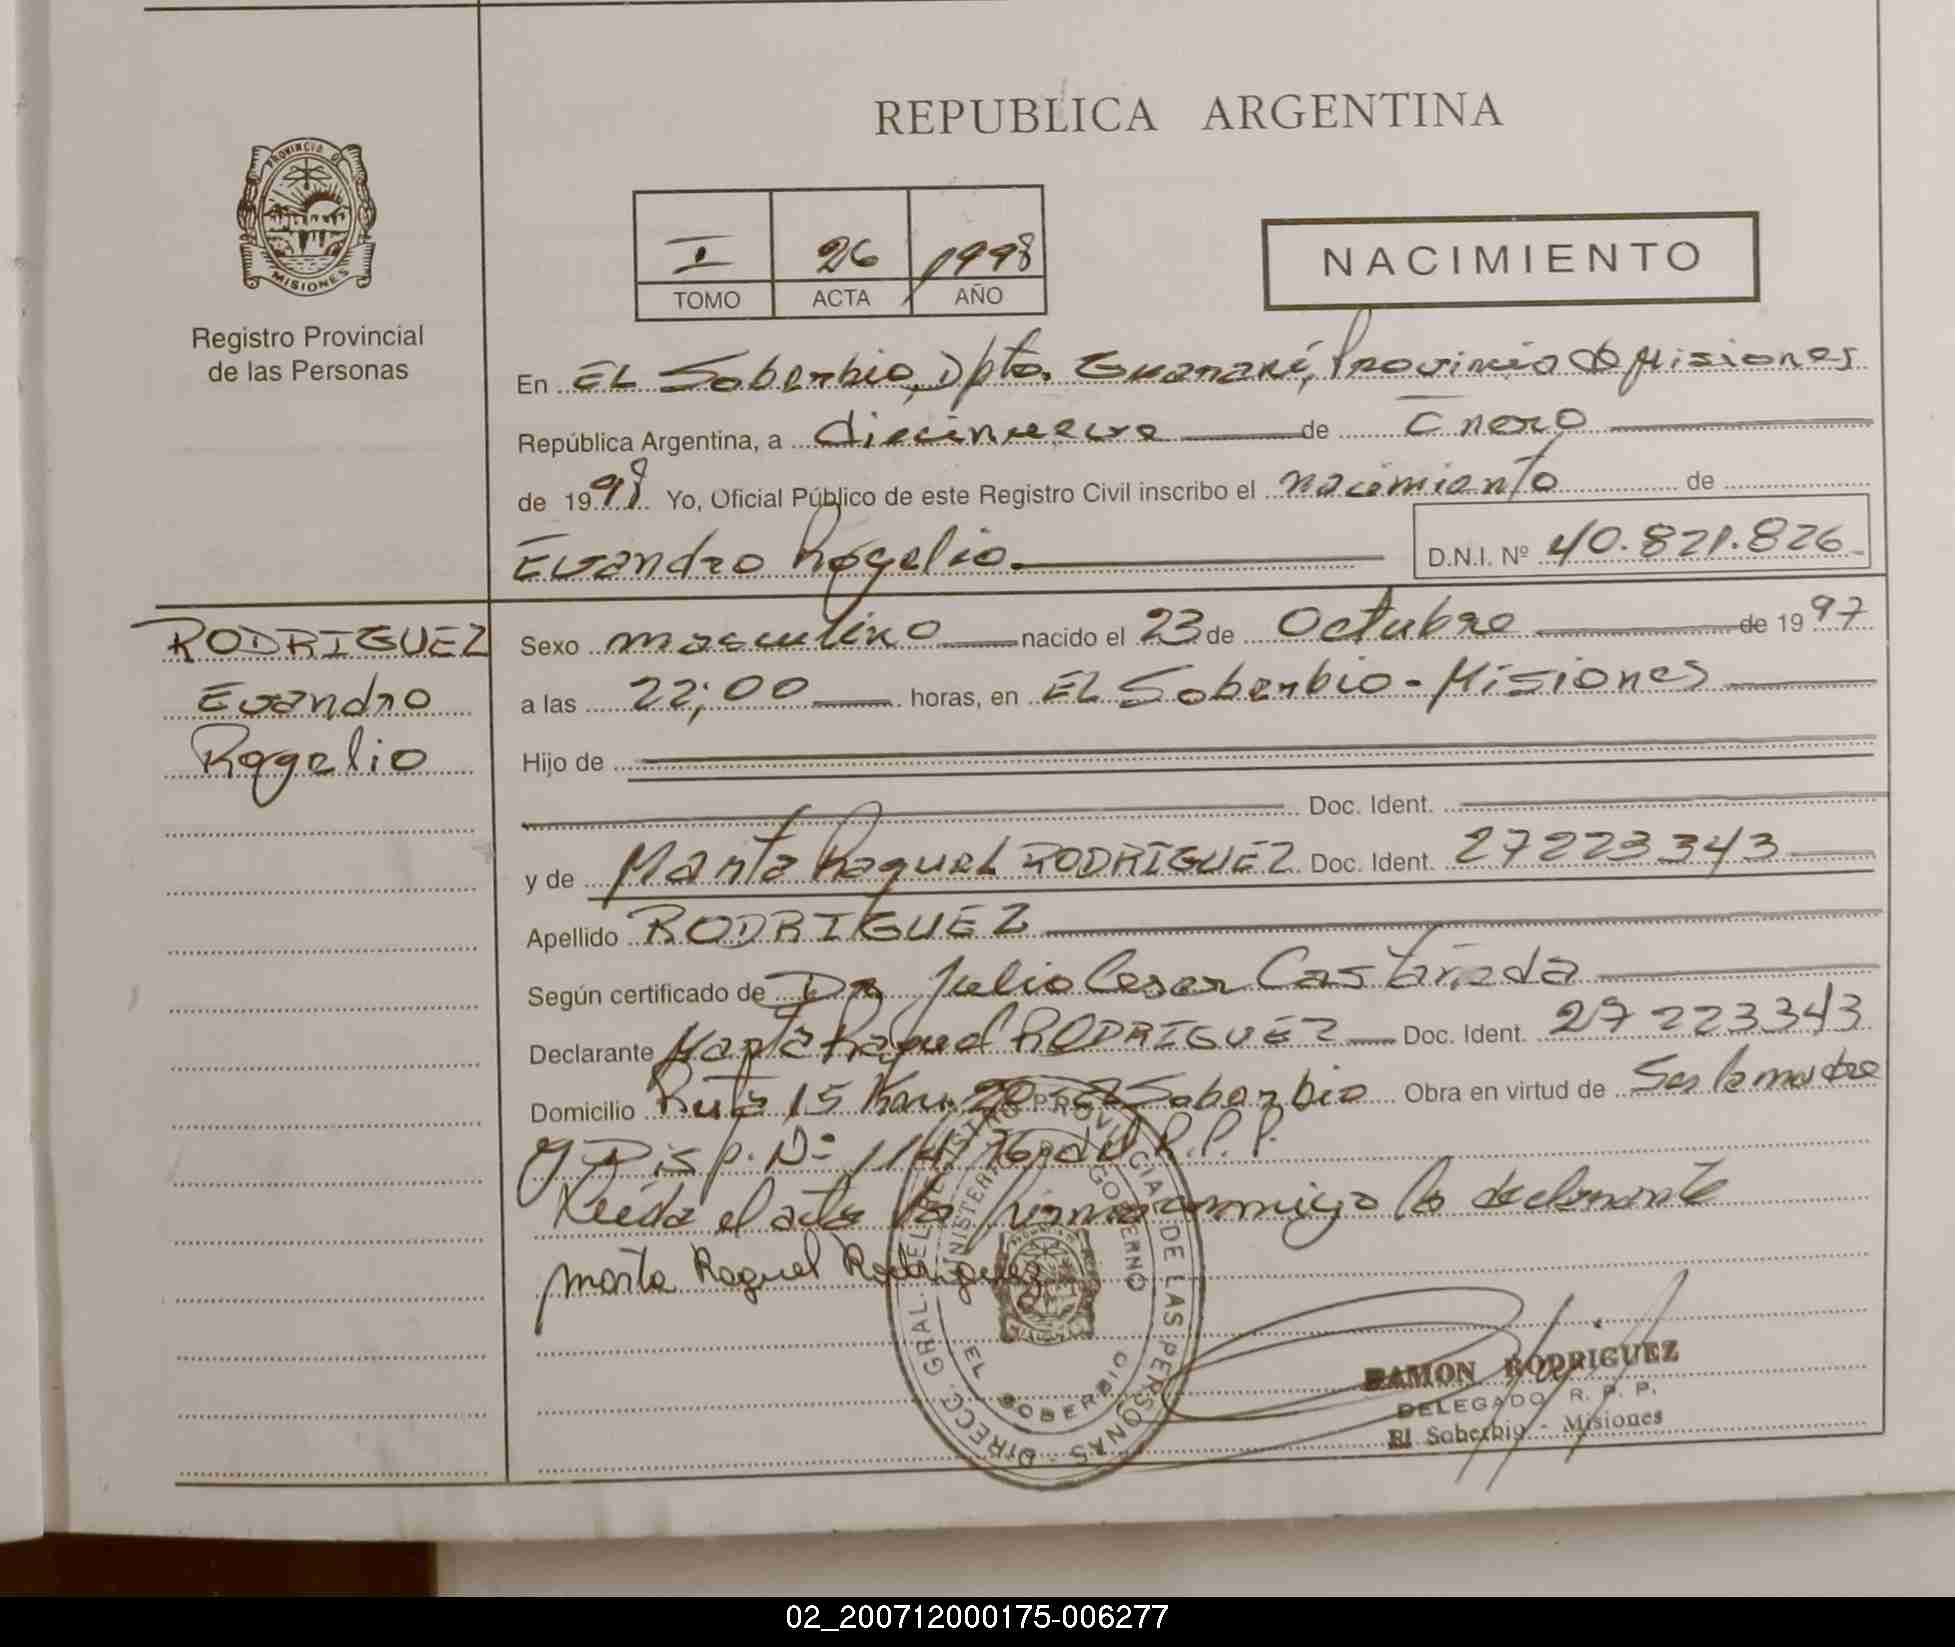 REPUBLICA ARGENTINA
PROVINCIA DE
MISIONES
Registro Provincial
de las Personas
I 26 1998
TOMO ACTA AÑO
NACIMIENTO
En EL Soberbio, Dpto. Guarani, Provincia de Misiones
República Argentina, a diecinueve de Enero
de 1998 Yo, Oficial Público de este Registro Civil inscribo el nacimiento de
Evandro Rogelio. D.N.I. Nº 40.821.826
RODRIGUEZ
Evandro
Rogelio
Sexo masculino nacido el 23 de Octubre de 1997
a las 22;00 horas, en EL Soberbio - Misiones
Hijo de
Doc. Ident.
y de Marta Raquel RODRIGUEZ Doc. Ident. 27223343
Apellido RODRIGUEZ
Según certificado de Dr Julio Cesar Castañeda
Declarante Marta Raquel RODRIGUEZ Doc. Ident. 27 223343
Domicilio Ruta 15 Km. 20 El Soberbio Obra en virtud de Ser la madre
y Disp. Nº 114/76 del R.P.P.
Leida el acta la firma conmigo la declarante
Marta Raquel Rodriguez
DIRECC. GRAL. DEL REGISTRO PROVINCIAL DE LAS PERSONAS
MINISTERIO GOBIERNO
EL SOBERBIO
RAMON RODRIGUEZ
DELEGADO R. P. P.
El Soberbio - Misiones
02_200712000175-006277